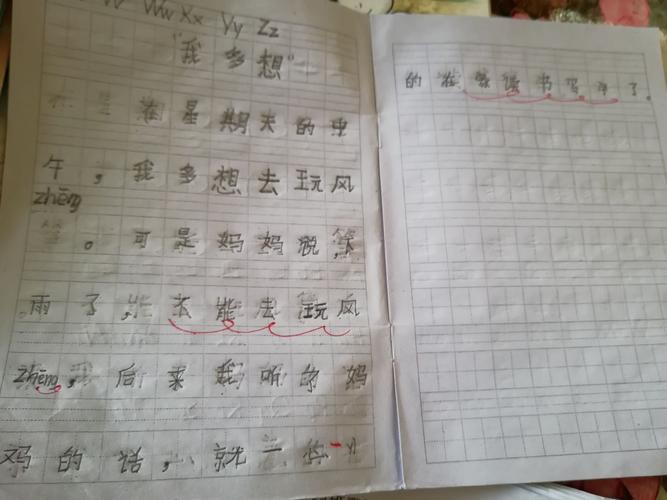 Ww Xx Yy Zz
"我多想"
在星期天的中
午,我多想去玩风
zhēng
。可是妈妈说,下
雨了,不能去玩风
zhēng,后来我听的妈
妈的话,就一
的在家读书写字了。